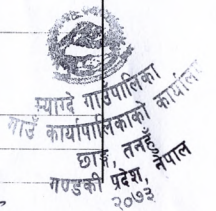 म्याग्दे गाउँपालिका
गाउँ कार्यपालिकाको कार्यालय
तनहुँ
गण्डकी प्रदेश, नेपाल
२०७३